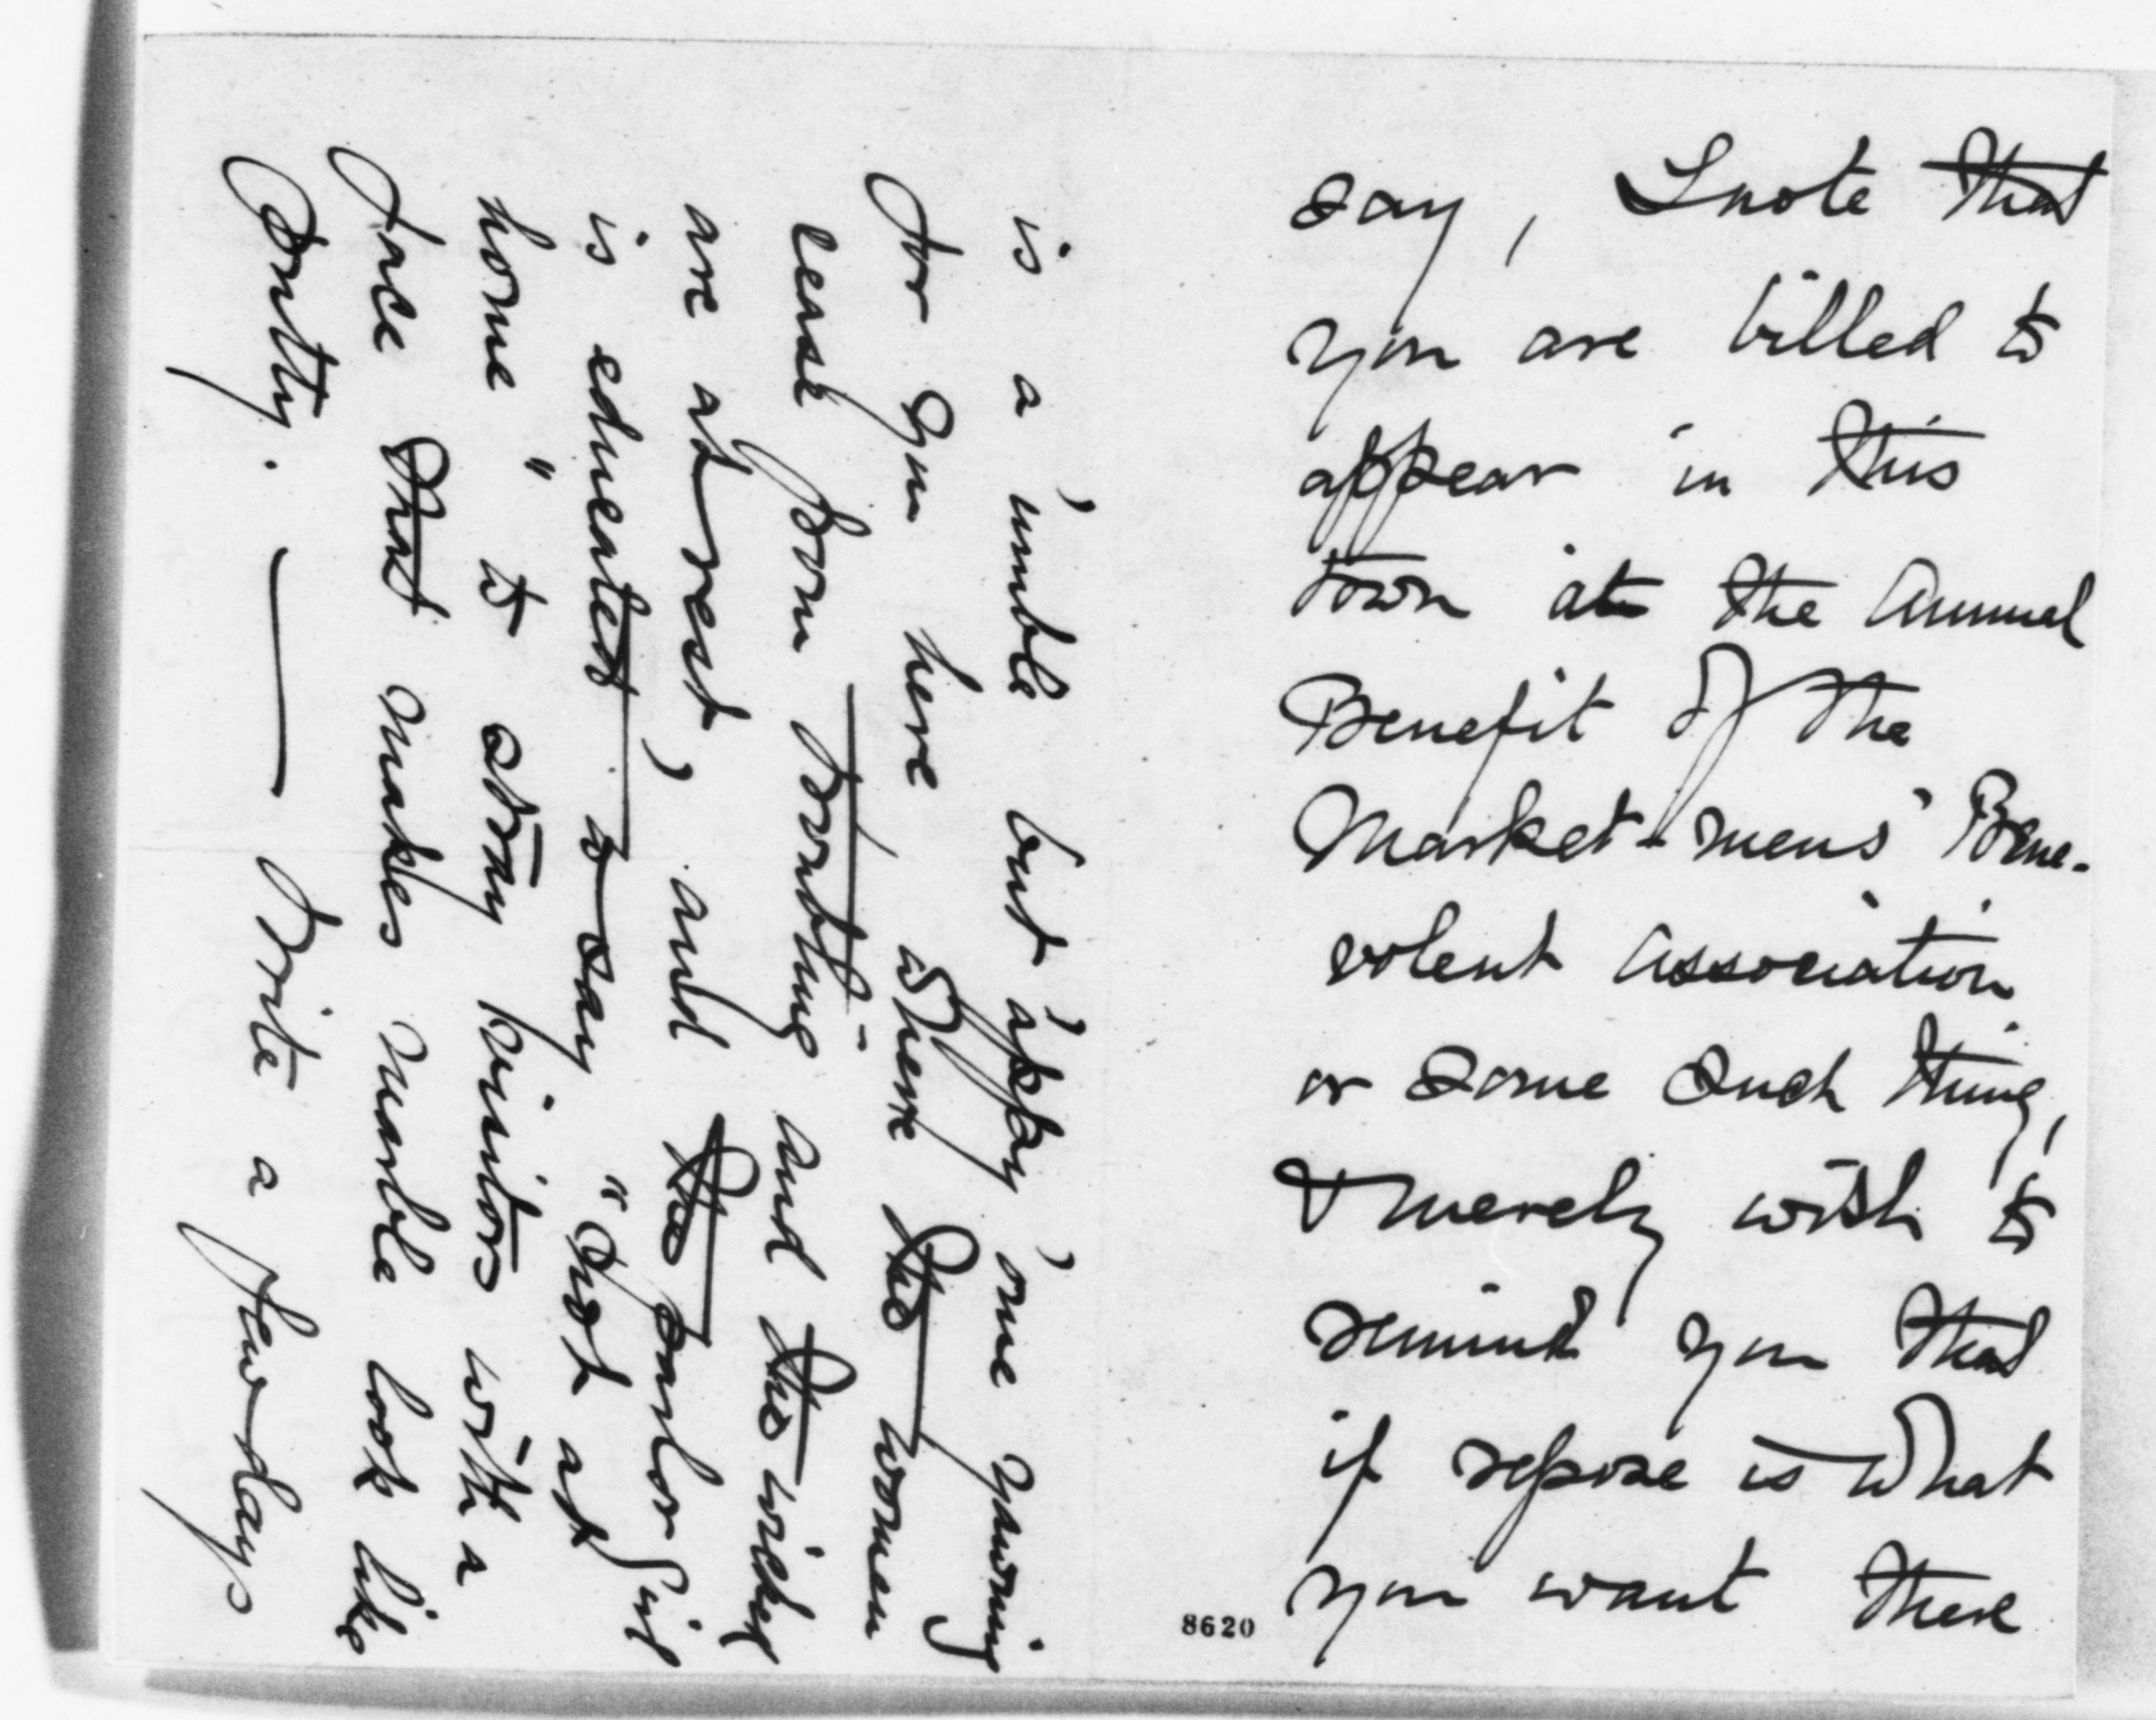 say, I note that
you are billed to
appear in this
town at the Annual
Benefit of the
Market-mens' Bene-
volent Association
or some such thing,
& merely wish to
remind you that
if repose is what
you want there
8620
is a 'umble but 'appy 'ome yawning
for you here where the women
cease from troubling and the wicked
are at rest, and the parlor girl
is educated to say "not at
home" to stray visitors with a
face that makes marble look like
putty. — Write a few days